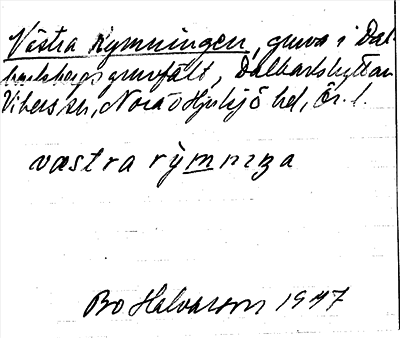 Västra Rymningen, gruva i Dal-
karlsbergs gruvfält, Dalkarlshyttan
Vikers sn, Nora o Hjulsjö hd, Ör. l.
vastra rỳmniŋa
Bo Halvarson 1947